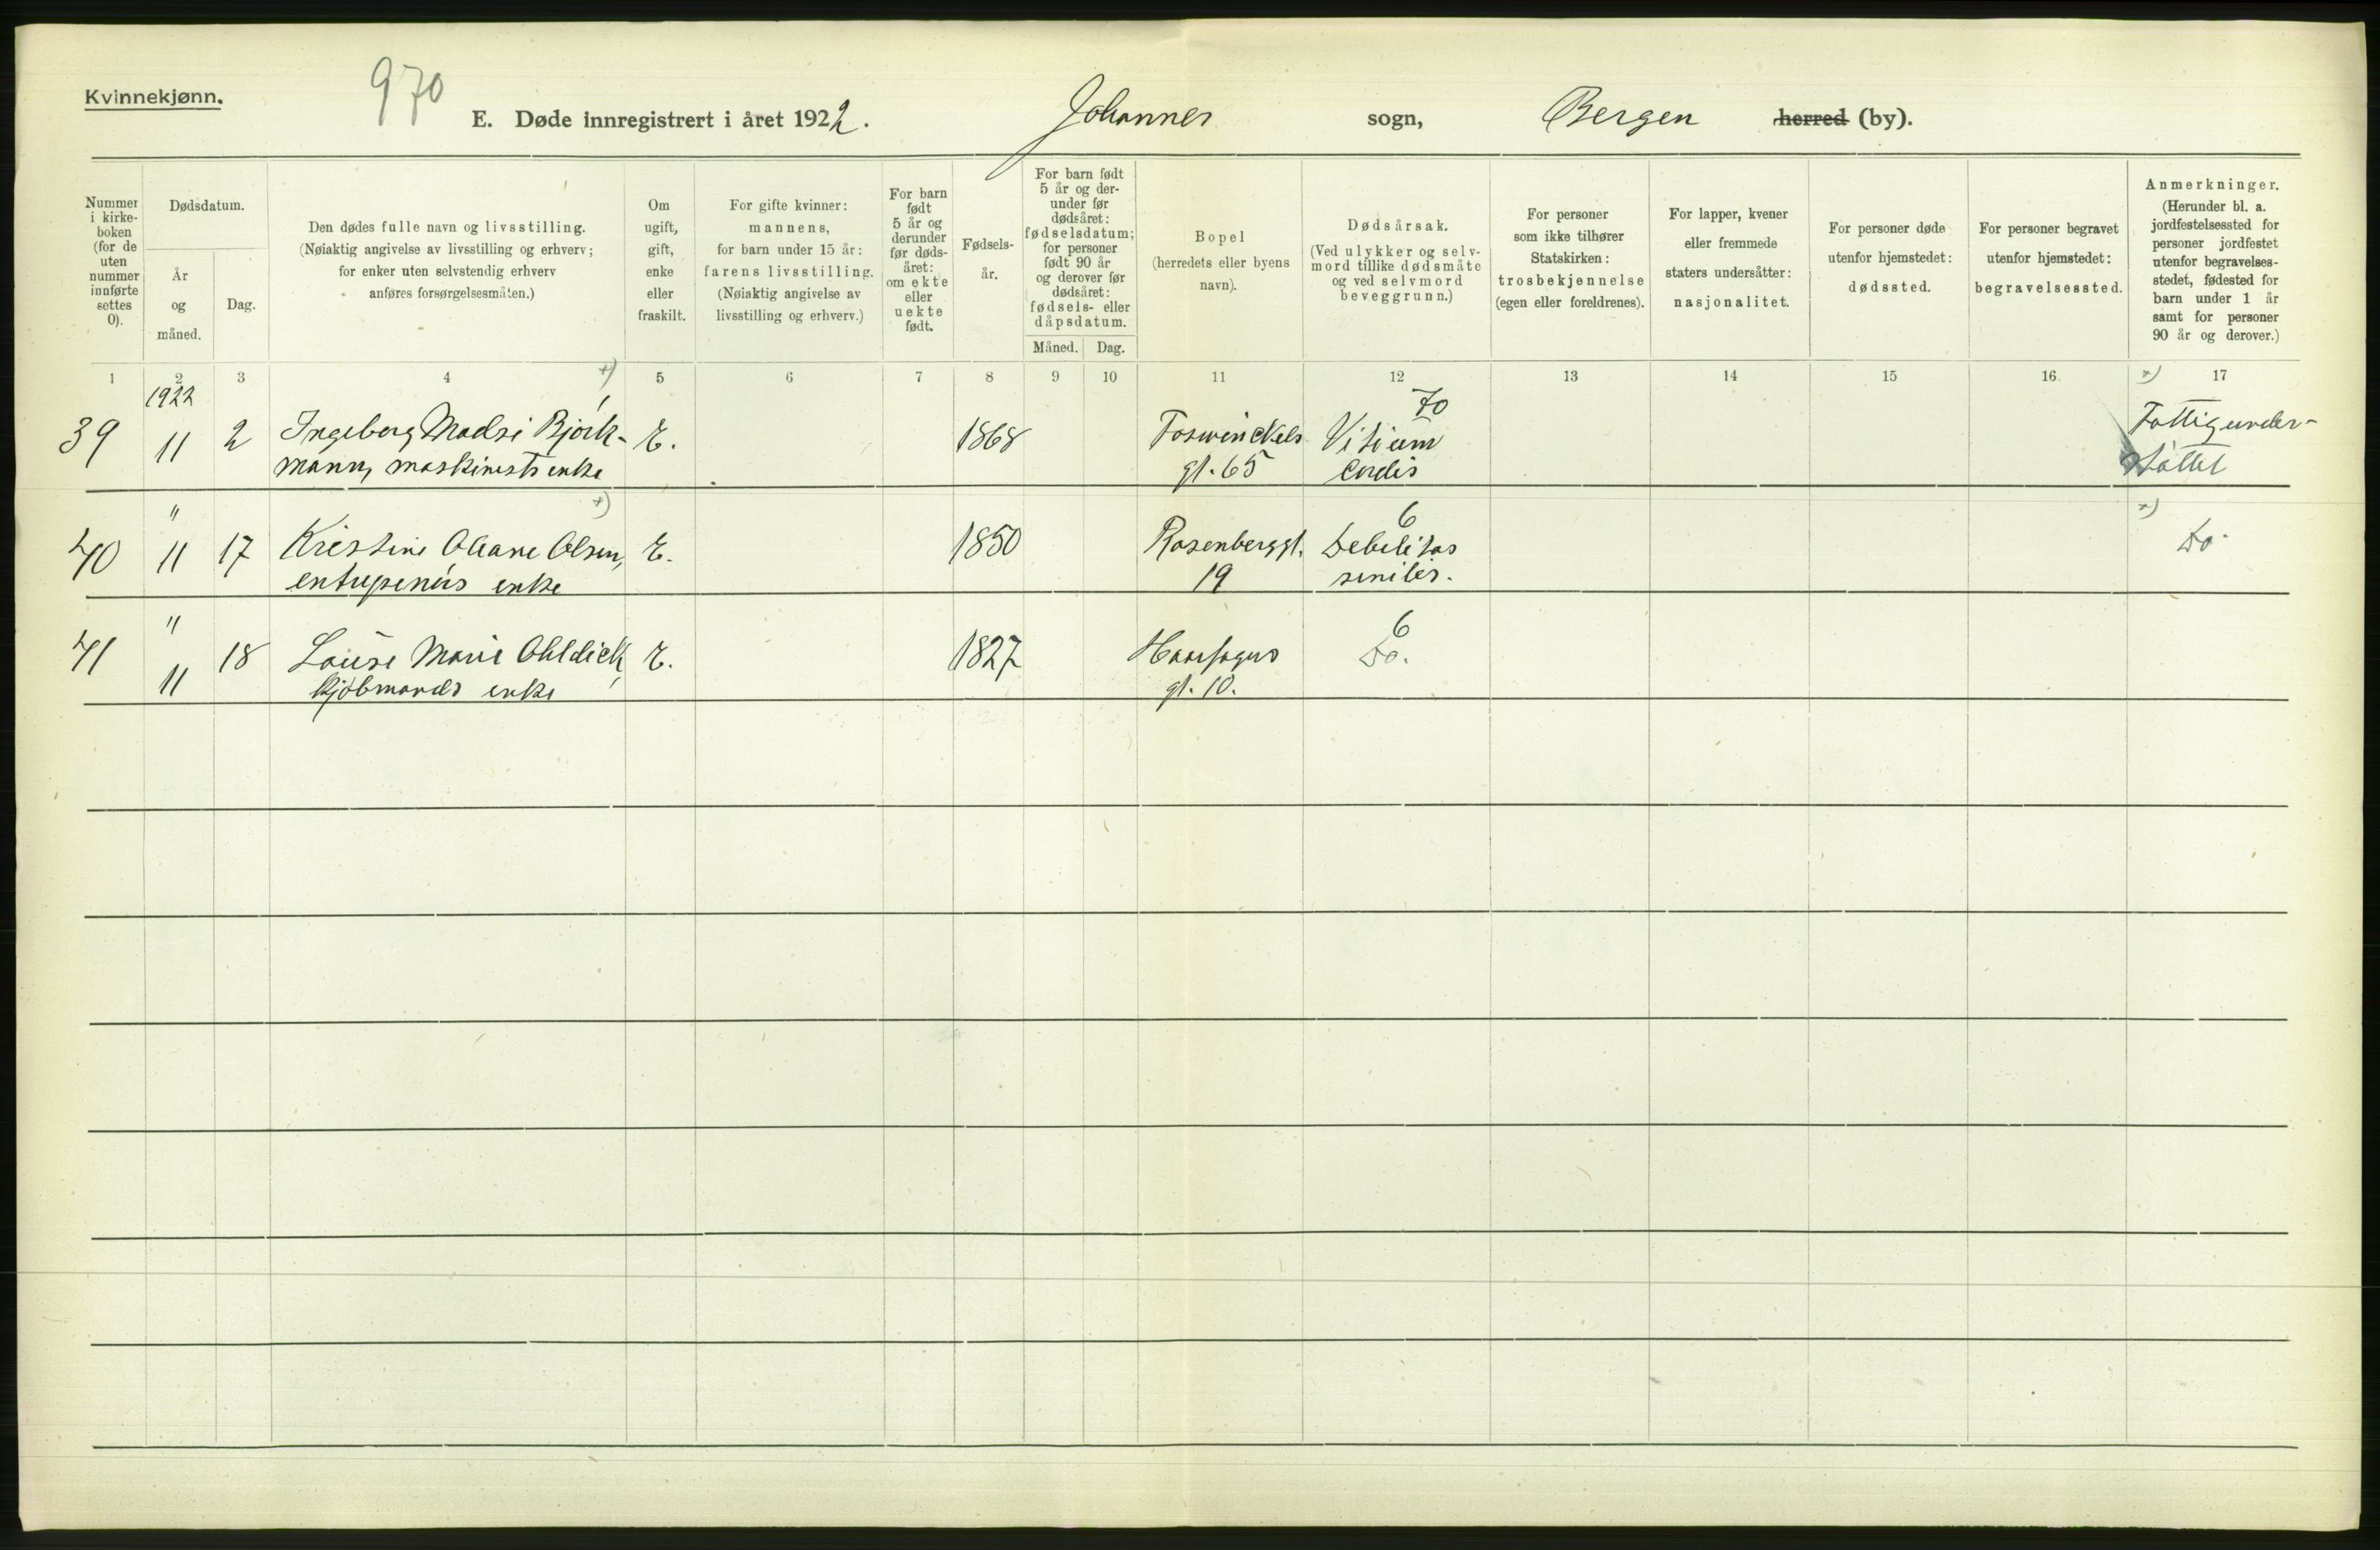 Kvinnekjønn.
970
E. Døde innregistrert i året 1922.
Johannes sogn, Bergen herred (by).
Nummer i kirke- boken (for de uten nummer innførte settes 0).
Dødsdatum.
År og måned.
Dag.
Den dødes fulle navn og livsstilling.
(Nøiaktig angivelse av livsstilling og erhverv;
for enker uten selvstendig erhverv
anføres forsørgelsesmåten.)
Om ugift, gift, enke eller fraskilt.
For gifte kvinner:
mannens,
for barn under 15 år:
farens livsstilling.
(Nøiaktig angivelse av
livsstilling og erhverv.)
For barn født 5 år og derunder før døds- året: om ekte eller uekte født.
Fødsels- år.
For barn født 5 år og der- under før dødsåret: fødselsdatum; for personer født 90 år og derover før dødsåret: fødsels- eller dåpsdatum.
Måned. Dag.
Bopel
(herredets eller byens
navn).
Dødsårsak.
(Ved ulykker og selv-
mord tillike dødsmåte
og ved selvmord
beveggrunn.)
For personer
som ikke tilhører
Statskirken:
trosbekjennelse
(egen eller foreldrenes).
For lapper, kvener
eller fremmede
staters undersåtter:
nasjonalitet.
For personer døde
utenfor hjemstedet:
dødssted.
For personer begravet
utenfor hjemstedet:
begravelsessted.
Anmerkninger.
(Herunder bl. a.
jordfestelsessted for
personer jordfestet
utenfor begravelses-
stedet, fødested for
barn under 1 år
samt for personer
90 år og derover.)
1 2 3 4 5 6 7 8 9 10 11 12 13 14 15 16 17
1922 +) 70 +)
39 11 2 Ingeborg Madsi Bjørk- E. 1868 Foswinckels Vitium Fattigunder-
mann, maskinists enke gt. 65 cordis støttet
" +) 6 +)
40 11 17 Kristine Oleane Olsen, E. 1850 Rosenberggt. Debilitas Do.
entreprenørs enke 19 senilis.
" 6
41 11 18 Louise Marie Ohldick, E. 1827 Haarfagres Do.
kjøbmands enke gt. 10.